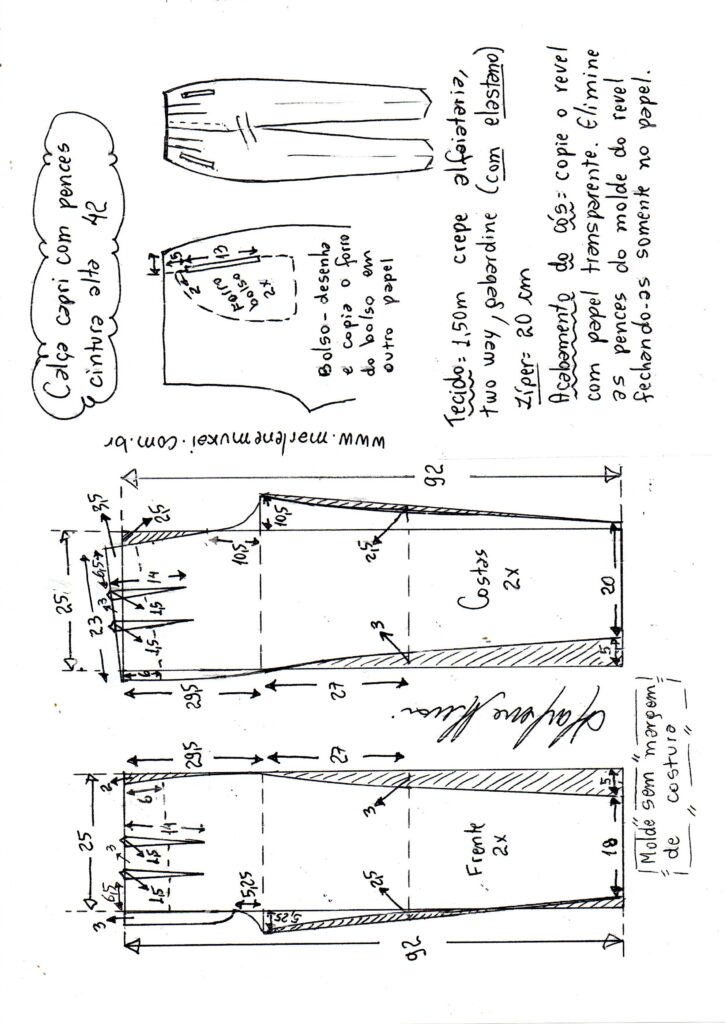 Calça capri com pences
cintura alta 42
1,5
13
2
Forro
bolso
2x
Bolso - desenha
e copia o forro
do bolso em
outro papel
Tecido = 1,50m crepe alfaiataria,
two way, gabardine (com elastano)
Zíper = 20 cm
Acabamento do cós = copie o revel
com papel transparente. Elimine
as pences do molde do revel
fechando-as somente no papel.
www.marlenemukai.com.br
92
3,5
2,5
25
23
6,5
3
14
1,5
1,5
6
10,5
10,5
29,5
27
2,5
3
Costas
2x
20
5
29,5
27
2
6
25
14
3
1,5
1,5
6,5
3
5,25
5,25
3
2,5
Frente
2x
5
18
92
Molde sem margem
de costura